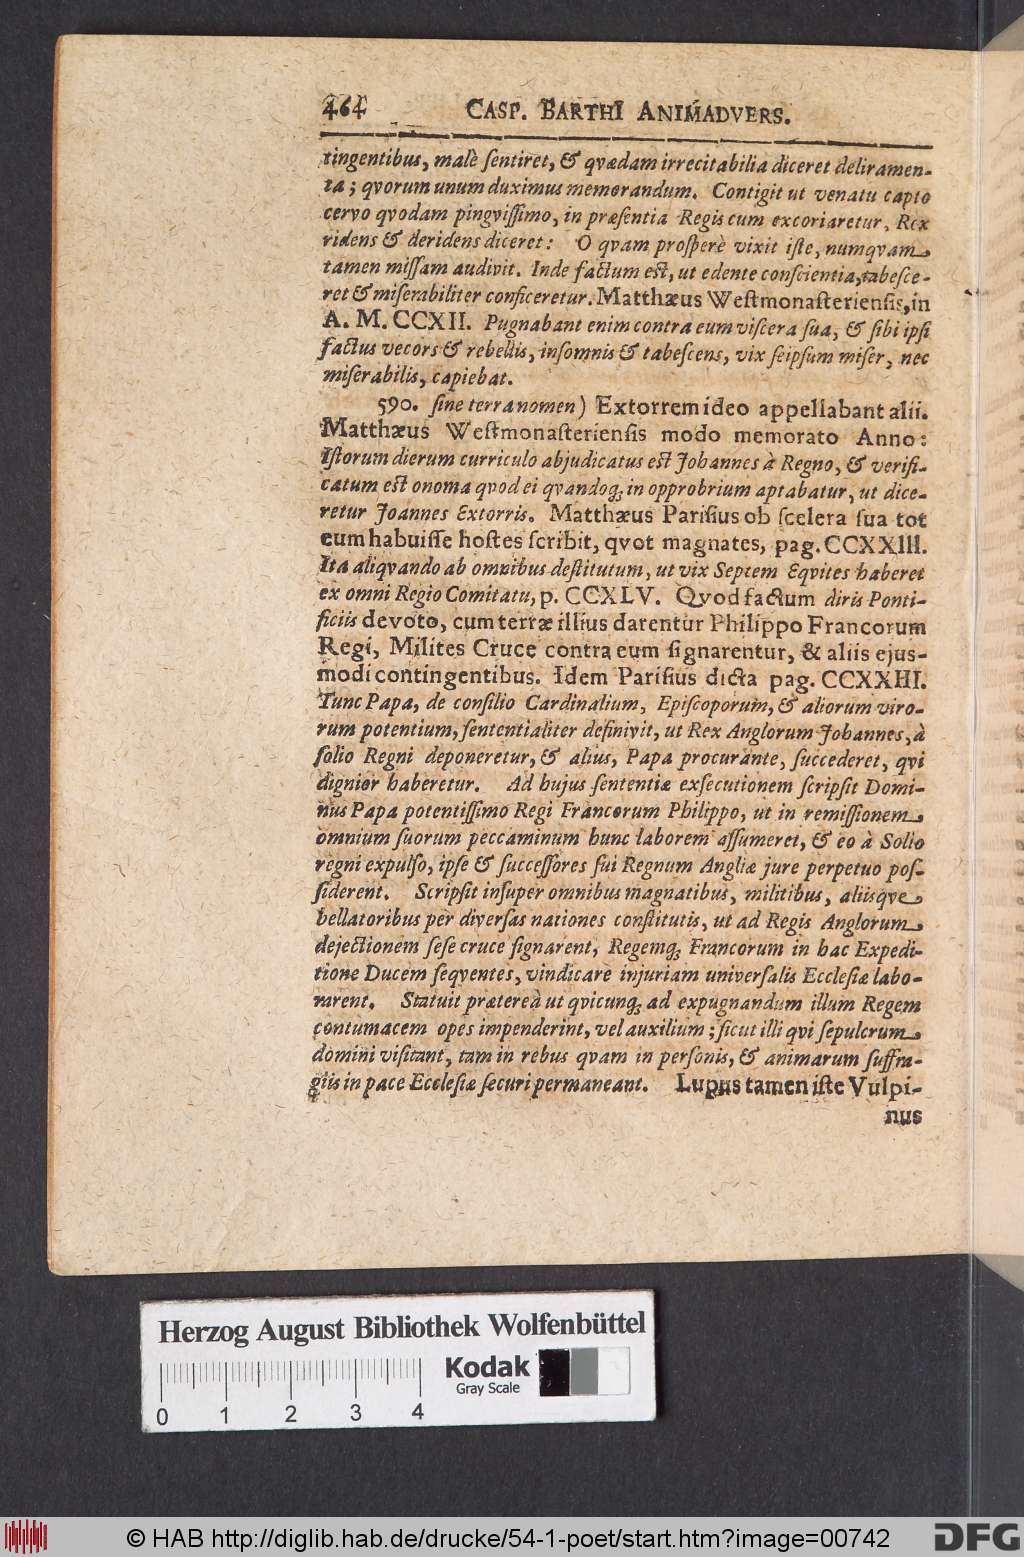 464 CASP. BARTHI ANIMADVERS.
tingentibus, malè ſentiret, & qvædam irrecitabilia diceret deliramen-
ta; qvorum unum duximus memorandum. Contigit ut venatu capto
cervo qvodam pingviſſimo, in præſentia Regis cum excoriaretur, Rex
ridens & deridens diceret: O qvam proſperè vixit iſte, numqvam
tamen miſſam audivit. Inde factum eſt, ut edente conſcientia, tabeſce-
ret & miſerabiliter conficeretur. Matthæus Weſtmonaſterienſis, in
A. M. CCXII. Pugnabant enim contra eum viſcera ſua, & ſibi ipſi
factus vecors & rebellis, inſomnis & tabeſcens, vix ſeipſum miſer, nec
miſerabilis, capiebat.
590. ſine terra nomen) Extorrem ideo appellabant alii.
Matthæus Weſtmonaſterienſis modo memorato Anno:
Iſtorum dierum curriculo abjudicatus eſt Johannes à Regno, & verifi-
catum eſt onoma qvod ei qvandoq; in opprobrium aptabatur, ut dice-
retur Joannes Extorris. Matthæus Pariſius ob ſcelera ſua tot
eum habuiſſe hoſtes ſcribit, qvot magnates, pag. CCXXIII.
Ita aliqvando ab omnibus deſtitutum, ut vix Septem Eqvites haberet
ex omni Regio Comitatu, p. CCXLV. Qvod factum diris Ponti-
ficiis devoto, cum terræ illius darentur Philippo Francorum
Regi, Milites Cruce contra eum ſignarentur, & aliis ejus-
modi contingentibus. Idem Pariſius dicta pag. CCXXIII.
Tunc Papa, de conſilio Cardinalium, Epiſcoporum, & aliorum viro-
rum potentium, ſententialiter definivit, ut Rex Anglorum Johannes, à
ſolio Regni deponeretur, & alius, Papa procurante, ſuccederet, qvi
dignior haberetur. Ad hujus ſententiæ exſecutionem ſcripſit Domi-
nus Papa potentiſſimo Regi Francorum Philippo, ut in remiſſionem
omnium ſuorum peccaminum hunc laborem aſſumeret, & eo à Solio
regni expulſo, ipſe & ſucceſſores ſui Regnum Angliæ jure perpetuo poſ-
ſiderent. Scripſit inſuper omnibus magnatibus, militibus, aliisqve
bellatoribus per diverſas nationes conſtitutis, ut ad Regis Anglorum
dejectionem ſeſe cruce ſignarent, Regemq; Francorum in hac Expedi-
tione Ducem ſeqventes, vindicare injuriam univerſalis Eccleſiæ labo-
rarent. Statuit prætereà ut qvicunq; ad expugnandum illum Regem
contumacem opes impenderint, vel auxilium; ſicut illi qvi ſepulcrum
domini viſitant, tam in rebus qvam in perſonis, & animarum ſuffra-
giis in pace Eccleſiæ ſecuri permaneant. Lupus tamen iſte Vulpi-
nus
Herzog August Bibliothek Wolfenbüttel
Kodak
Gray Scale
0 1 2 3 4
© HAB http://diglib.hab.de/drucke/54-1-poet/start.htm?image=00742
DFG